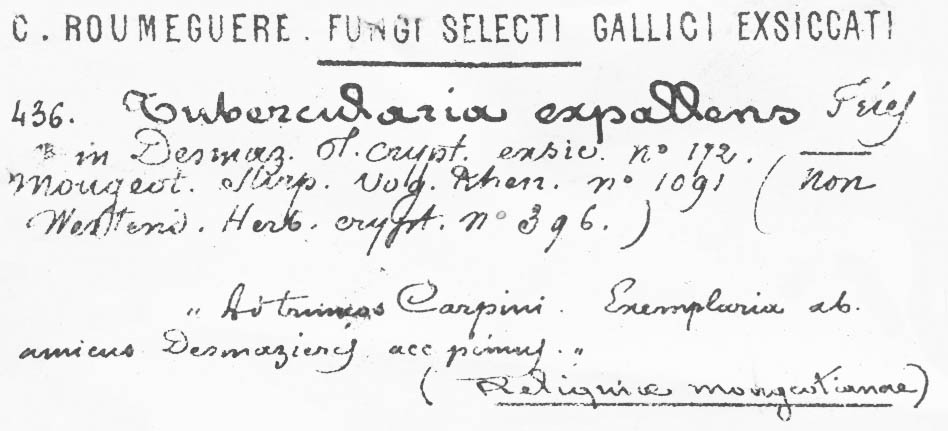 C. ROUMEGUERE. FUNGI SELECTI GALLICI EXSICCATI
436. Tubercularia expallens Fries
in Desmaz. Pl. crypt. exsic. nº 172.
Mougeot. Stirp. Vog. Rhen. nº 1091 (non
Westend. Herb. crypt. nº 396.)
„ Ad truncos Carpini. Exemplaria ab.
amicus Desmazieres accepimus. „
(Reliquiæ mougeotianae)